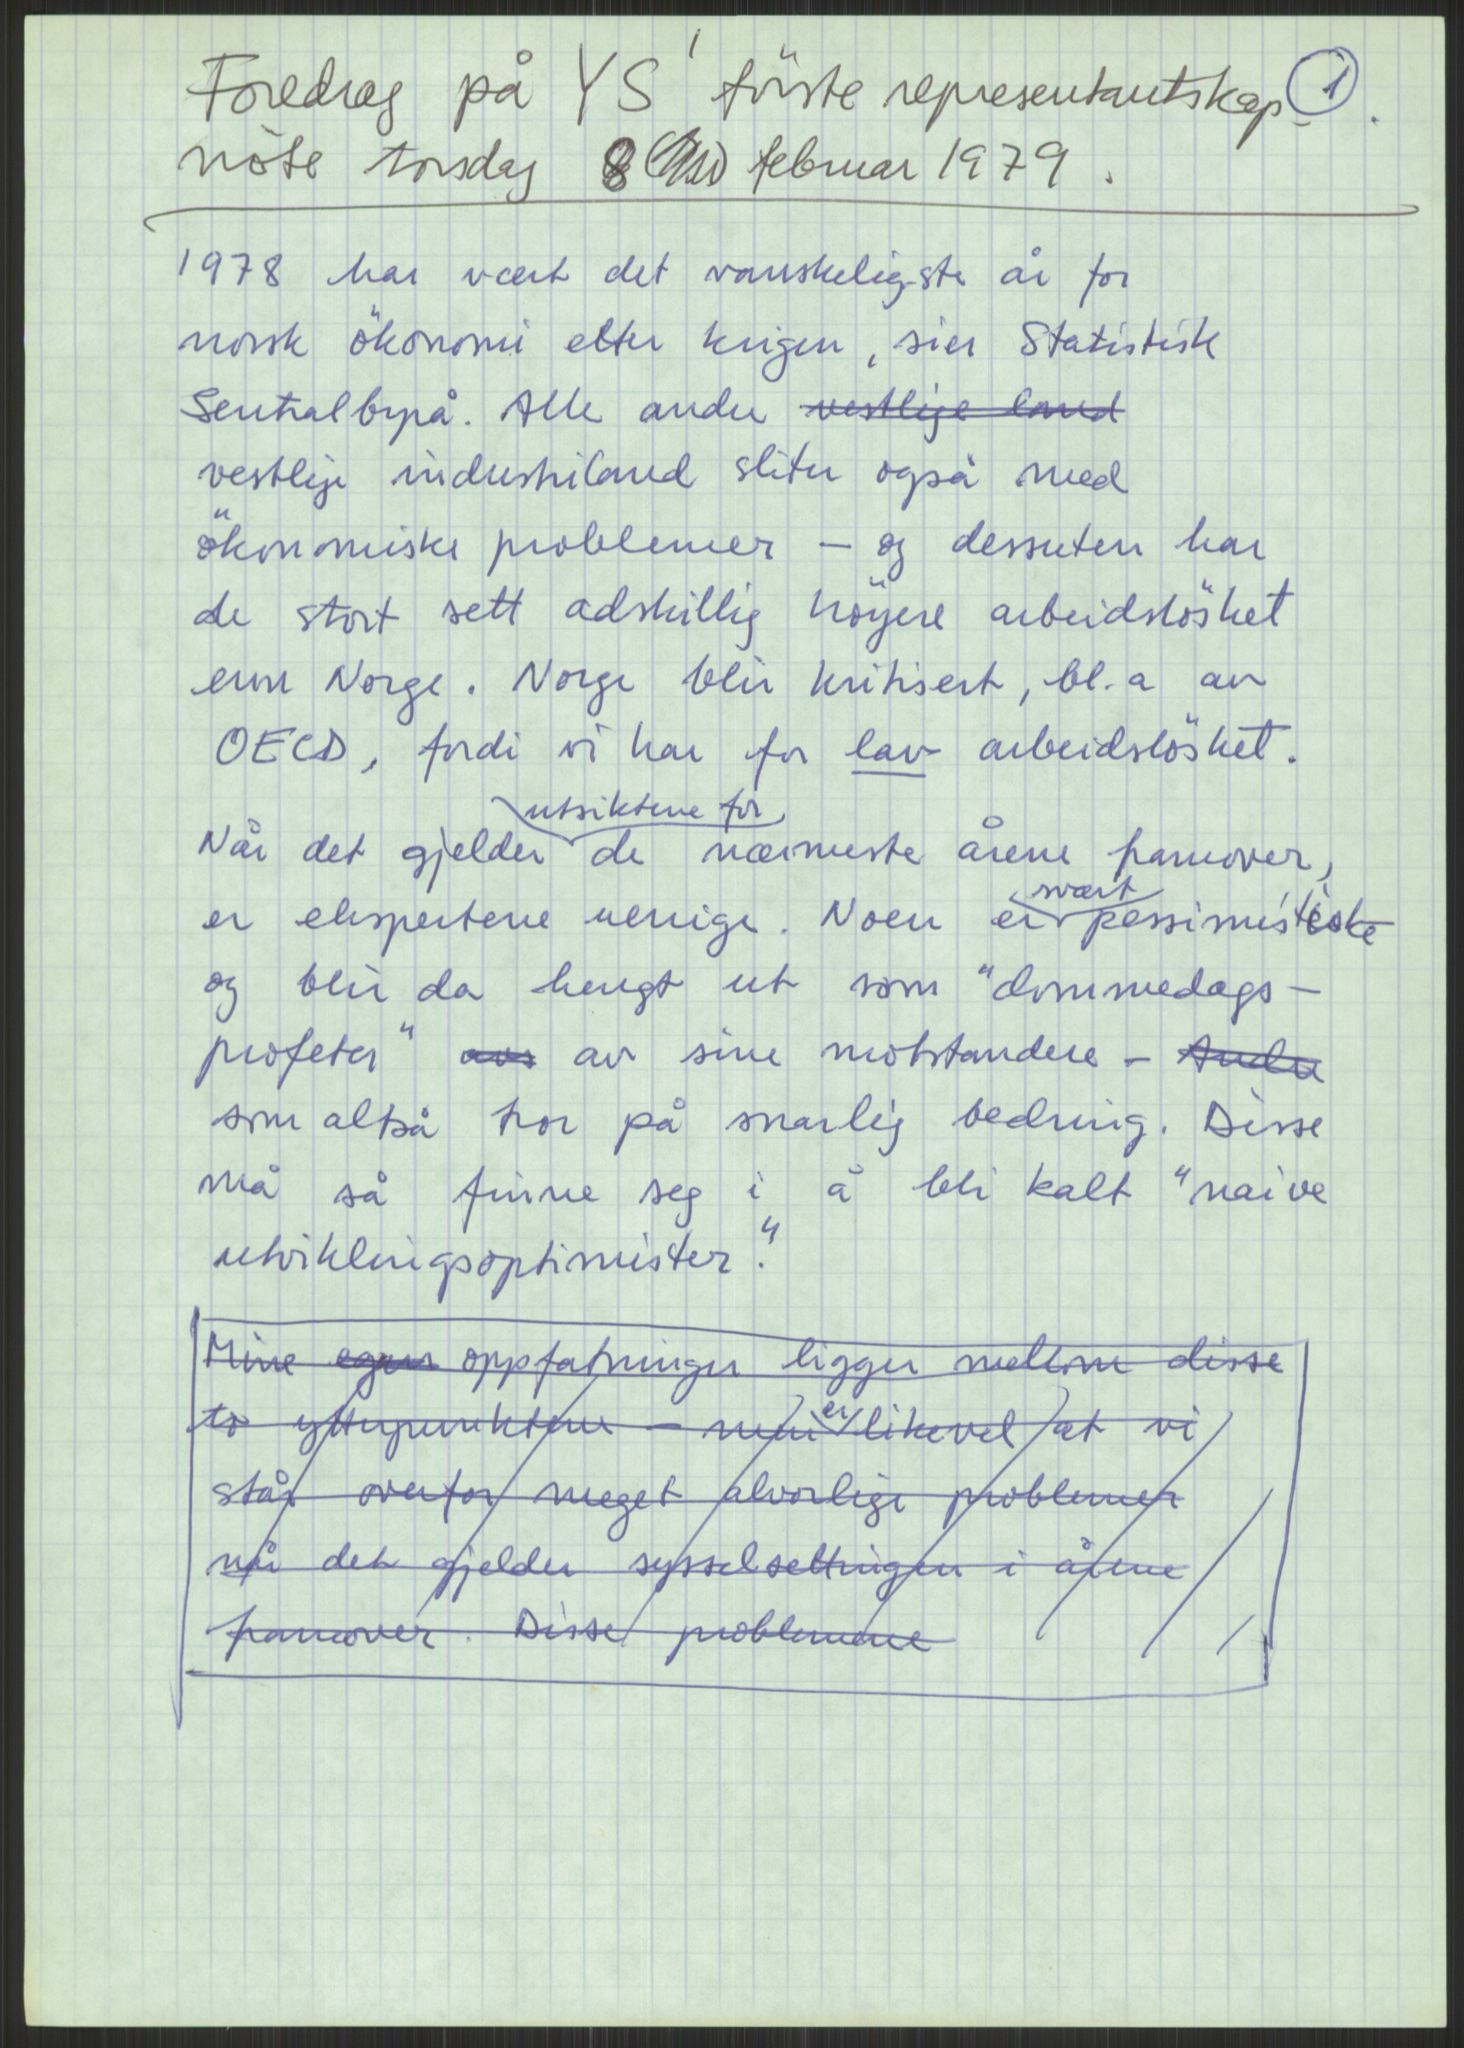 Foredrag på YS' förste representantskap- 1.
möte torsdag 8 februar 1979.
1978 har vært det vanskeligste år for
norsk ökonomi etter krigen, sier Statistisk
Sentralbyrå. Alle andre vestlige land
vestlige industriland sliter også med
ökonomiske problemer – og dessuten har
de stort sett adskillig höyere arbeidslöshet
enn Norge. Norge blir kritisert, bl.a av
OECD, fordi vi har for lav arbeidslöshet.
utsiktene for
Når det gjelder de nærmeste årene framover,
svært
er ekspertene uenige. Noen er pessimistiske
og blir da hengt ut som "dommedags-
profeter" av sine motstandere – Andre
som altså tror på snarlig bedring. Disse
må så finne seg i å bli kalt "naive
utviklingsoptimister".
Mine egne oppfatninger ligger mellom disse
er
to ytterpunktene – men likevel at vi
står overfor meget alvorlige problemer
når det gjelder sysselsettingen i årene
framover. Disse problemene